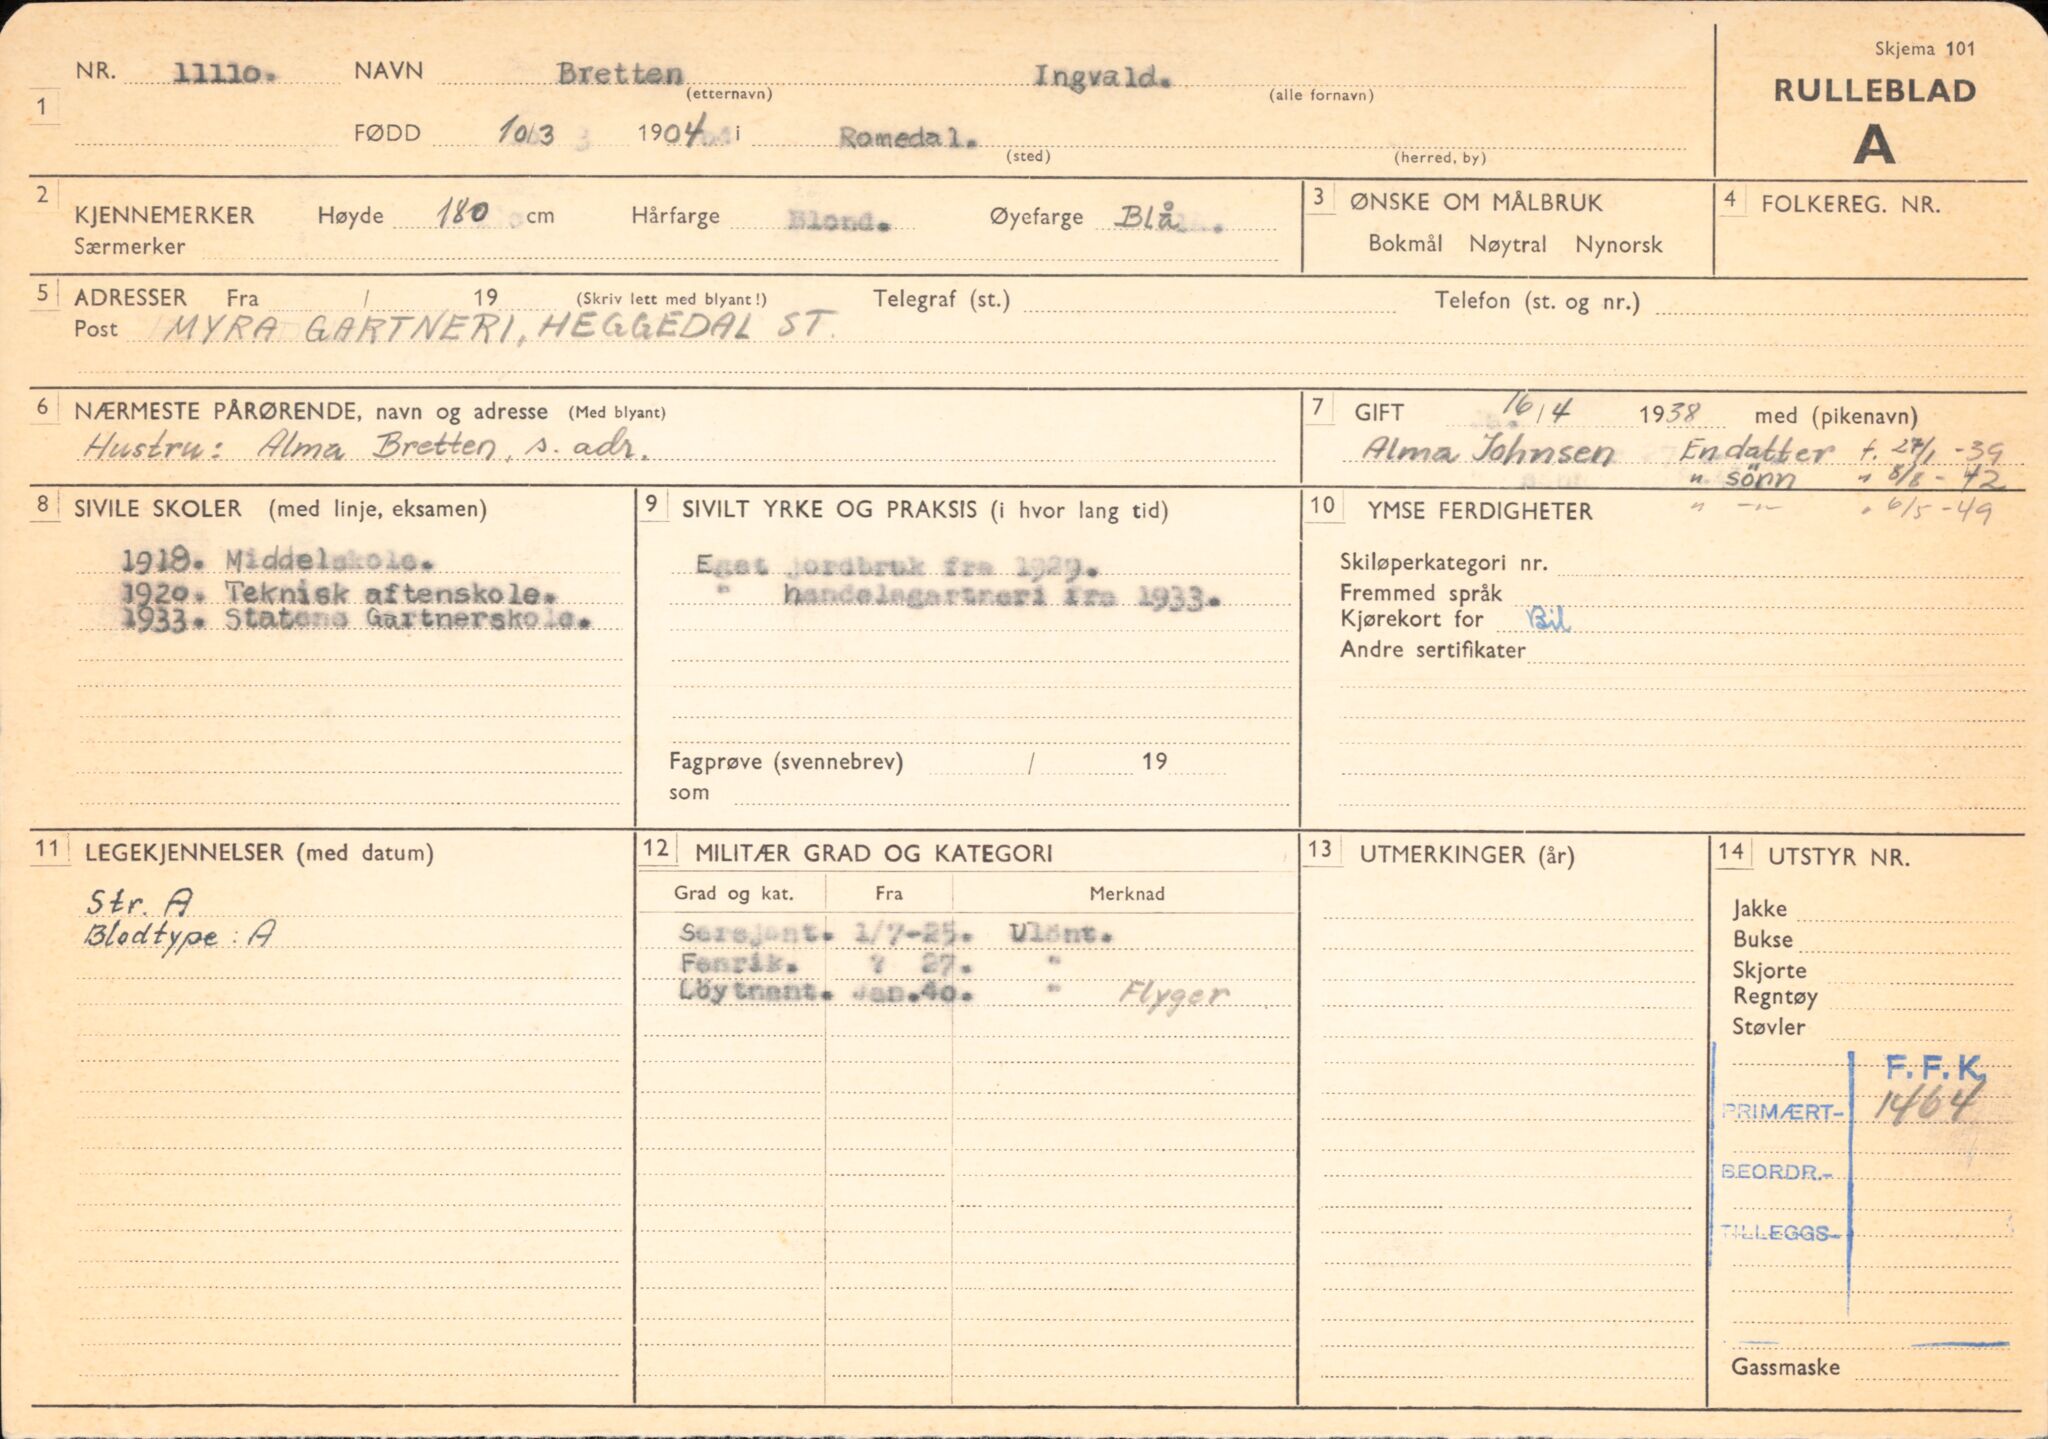 Skjema 101
RULLEBLAD
A
1 NR. 11110. NAVN Bretten Ingvald.
(etternavn) (alle fornavn)
FØDD 10/3 1904 i Romedal.
(sted) (herred, by)
2 KJENNEMERKER Høyde 180 cm Hårfarge Blond. Øyefarge Blå
Særmerker
3 ØNSKE OM MÅLBRUK
Bokmål Nøytral Nynorsk
4 FOLKEREG. NR.
5 ADRESSER Fra / 19 (Skriv lett med blyant!) Telegraf (st.) Telefon (st. og nr.)
Post MYRA GARTNERI, HEGGEDAL ST.
6 NÆRMESTE PÅRØRENDE, navn og adresse (Med blyant)
Hustru: Alma Bretten, s. adr.
7 GIFT 16/4 1938 med (pikenavn)
Alma Johnsen En datter f. 27/1 -39
" sönn " 8/8 - 42
" -"- " 6/5 -49
8 SIVILE SKOLER (med linje, eksamen)
1918. Middelskole.
1920. Teknisk aftenskole.
1933. Statens Gartnerskole.
9 SIVILT YRKE OG PRAKSIS (i hvor lang tid)
Eget jordbruk fra 1929.
" handelsgartneri fra 1933.
Fagprøve (svennebrev) / 19
som
10 YMSE FERDIGHETER
Skiløperkategori nr.
Fremmed språk
Kjørekort for Bil
Andre sertifikater
11 LEGEKJENNELSER (med datum)
Str. A
Blodtype: A
12 MILITÆR GRAD OG KATEGORI
Grad og kat. Fra Merknad
Sersjant. 1/7-25. Ulönt.
Fenrik. ? 27. "
Löytnant. Jan.40. " Flyger
13 UTMERKINGER (år)
14 UTSTYR NR.
Jakke
Bukse
Skjorte
Regntøy
Støvler
F. F. K.
PRIMÆRT- 1464
BEORDR.-
TILLEGGS-
Gassmaske